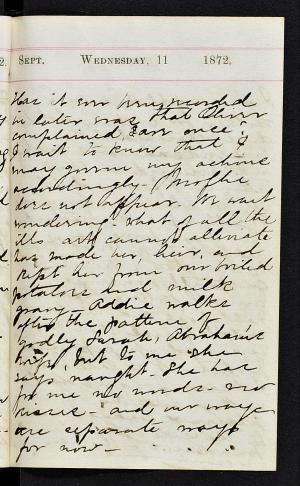 2. SEPT. WEDNESDAY, 11 1872.
Has it ever been recorded
in later was that Oliver
complained "ear once"?
I wait to know that I
may govern my actions
accordingly.
does not appear. We wait
wondering what of all the
ills art cannot alleviate
has made her, heir, and
kept her from our boiled
potatoes and milk
gravy. Addie walks
after the pattern of
godly Sarah, Abraham's
wife, but to me she
says naught. She has
for me no words - no
kisses - and our ways
are separate ways
for now -